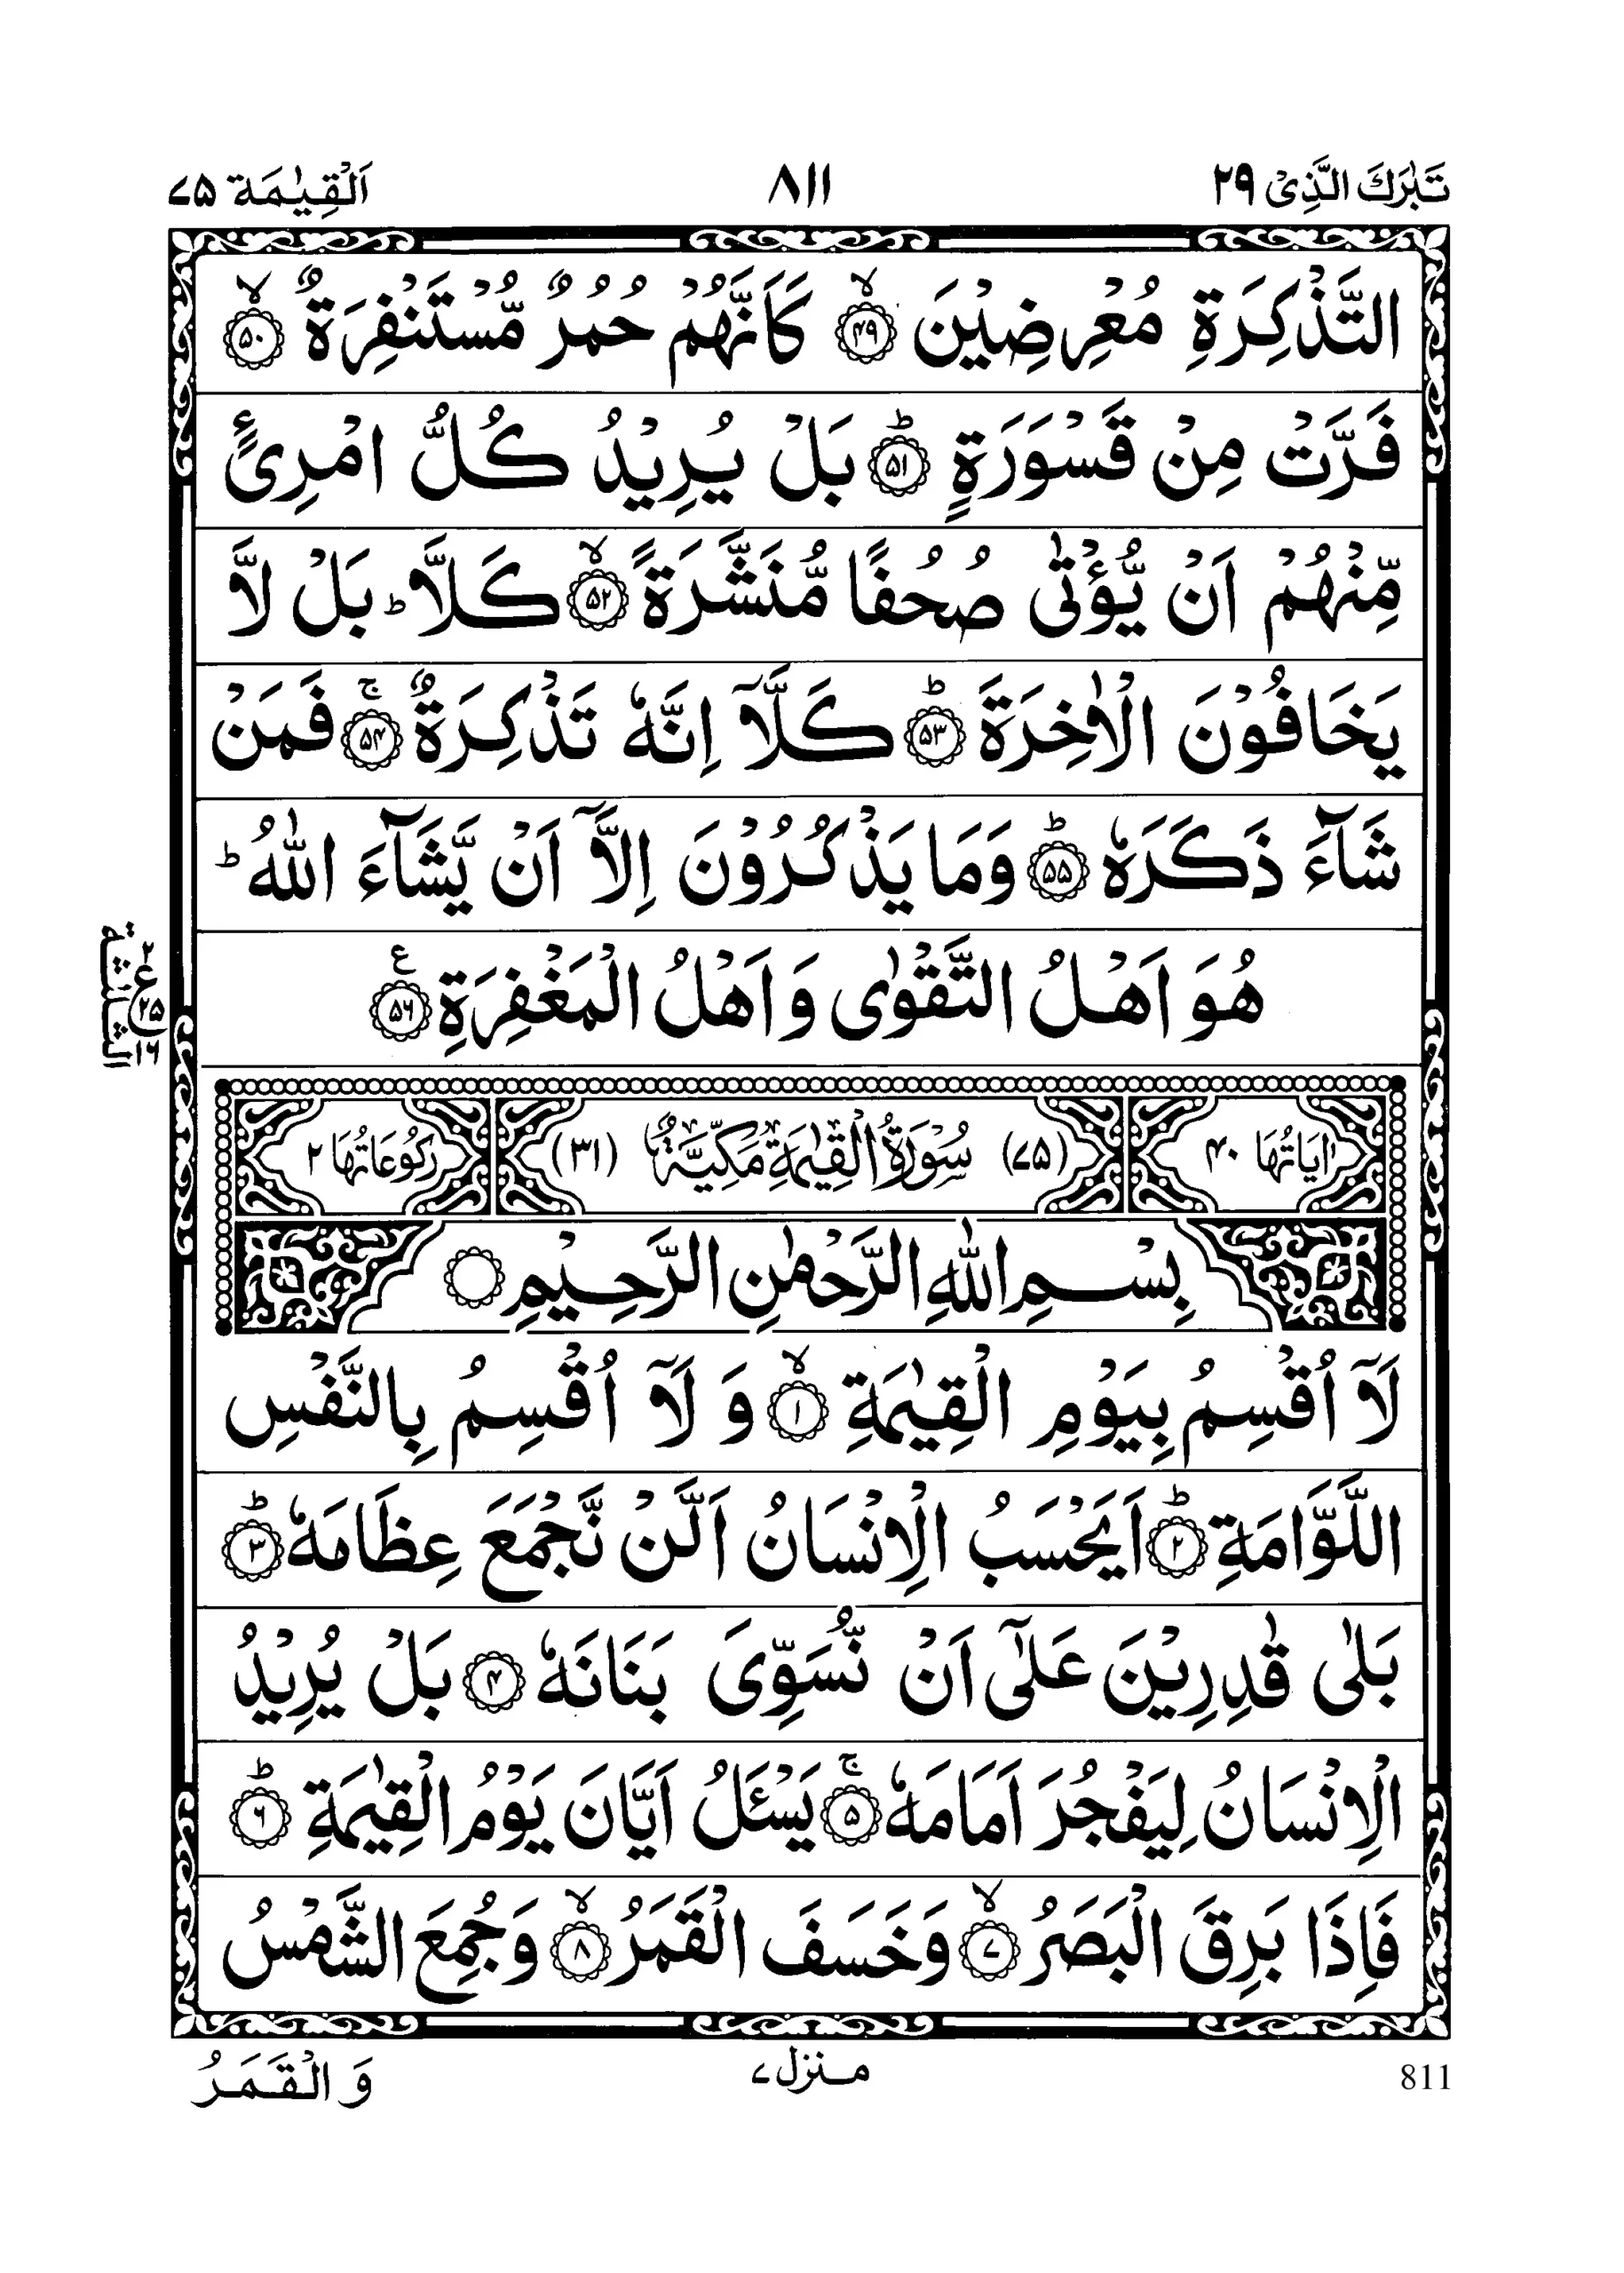 تَبٰرَكَ الَّذِیْ ۲۹
۸۱۱
اَلْقِیٰمَة ۷۵
التَّذْكِرَةِ مُعْرِضِیْنَ ﴿۴۹﴾ۙ كَاَنَّهُمْ حُمُرٌ مُّسْتَنْفِرَةٌ ﴿۵۰﴾ۙ
فَرَّتْ مِنْ قَسْوَرَةٍ ﴿۵۱﴾ؕ بَلْ یُرِیْدُ كُلُّ امْرِئٍ
مِّنْهُمْ اَنْ یُّؤْتٰی صُحُفًا مُّنَشَّرَةً ﴿۵۲﴾ۙ كَلَّا ؕ بَلْ لَّا
یَخَافُوْنَ الْاٰخِرَةَ ﴿۵۳﴾ؕ كَلَّاۤ اِنَّهٗ تَذْكِرَةٌ ﴿۵۴﴾ۚ فَمَنْ
شَآءَ ذَكَرَهٗ ﴿۵۵﴾ؕ وَمَا یَذْكُرُوْنَ اِلَّاۤ اَنْ یَّشَآءَ اللّٰهُ ؕ
هُوَ اَهْلُ التَّقْوٰی وَاَهْلُ الْمَغْفِرَةِ ﴿۵۶﴾ع
الثلثة
۲ ع ۲۵ ۱۶
اٰیَاتُهَا ۴۰
(۷۵) سُوْرَةُ الْقِیٰمَةِ مَكِّیَّةٌ (۳۱)
رُكُوْعَاتُهَا ۲
بِسْمِ اللّٰهِ الرَّحْمٰنِ الرَّحِیْمِ
لَاۤ اُقْسِمُ بِیَوْمِ الْقِیٰمَةِ ﴿۱﴾ۙ وَ لَاۤ اُقْسِمُ بِالنَّفْسِ
اللَّوَّامَةِ ﴿۲﴾ؕ اَیَحْسَبُ الْاِنْسَانُ اَلَّنْ نَّجْمَعَ عِظَامَهٗ ﴿۳﴾ؕ
بَلٰی قٰدِرِیْنَ عَلٰۤی اَنْ نُّسَوِّیَ بَنَانَهٗ ﴿۴﴾ بَلْ یُرِیْدُ
الْاِنْسَانُ لِیَفْجُرَ اَمَامَهٗ ﴿۵﴾ۚ یَسْئَلُ اَیَّانَ یَوْمُ الْقِیٰمَةِ ﴿۶﴾ؕ
فَاِذَا بَرِقَ الْبَصَرُ ﴿۷﴾ۙ وَخَسَفَ الْقَمَرُ ﴿۸﴾ۙ وَجُمِعَ الشَّمْسُ
811
منزل ۷
وَالْقَمَرُ